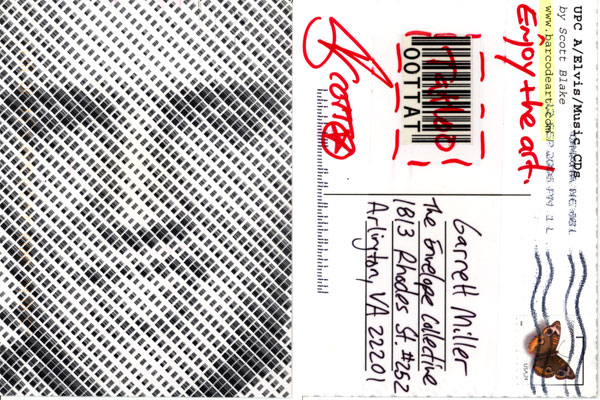 UPC A/Elvis/Music CDs
by Scott Blake
www.barcodeart.com
Enjoy the art.
TATTOO
OOTTAT
Scott
Garrett Miller
The Envelope Collective
1813 Rhodes St. #252
Arlington, VA 22201